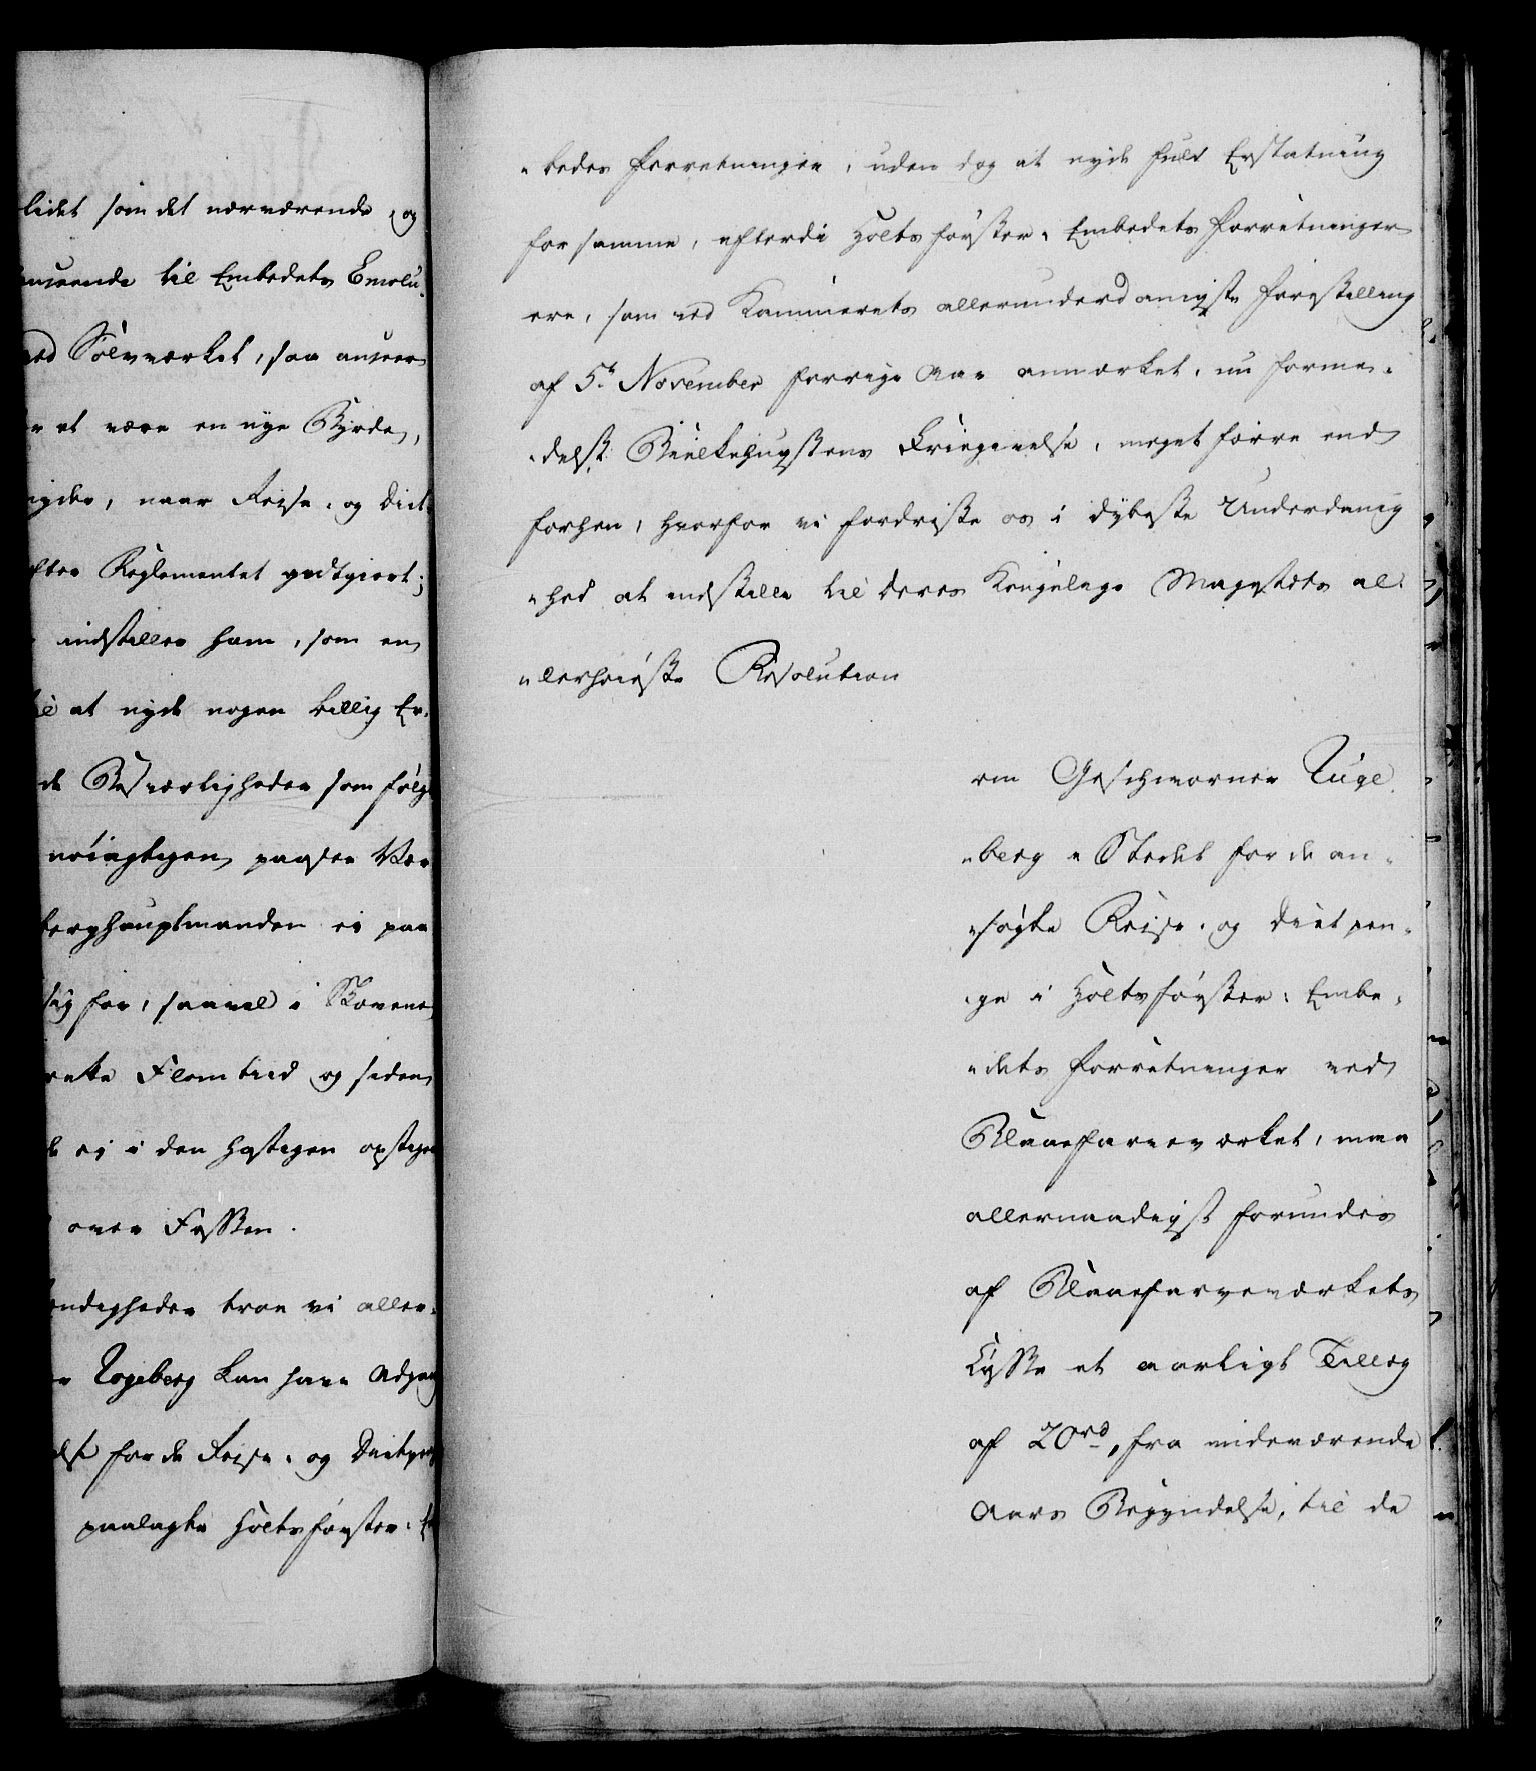 lidet som det nærværende, og
anseende til Embedets Emolu-
ved Sølvværket, saa anseer
at være en nye Byrde,
nyder, naar Reise- og Diet
efter Reglementet godtgiort;
indstiller ham, som en
til at nyde nogen billig Er-
de Besværligheder som følge
nøiagtigen paasee Vær
berghauptmanden ei paa
sig for, saavel i Skovene
Flomtiid og siden
ei i den hastigen opstigen
over Fossen.
omstændigheder troe vi aller-
Vogeberg kan have Adgang
else for de Reise- og Dietpen
paalagte Holtsførster-
-bedes Forretninger, uden dog at nyde fuld Erstatning
for samme, efterdi Holtsførster-Embedets Forretninger
ere, som ved Kammerets allerunderdanigste Forestilling
af 5te November forrige Aar anmærket, nu forme-
-delst Bielkehugstens Frigivelse, meget færre end
forhen, hvorfor vi fordriste os i dybeste Underdanig
-hed at indstille til Deres Kongelige Majestæts al-
-lerhøieste Resolution
om Geschworner Vuge
-berg i Stedet for de an-
-søgte Reise- og Dietpen-
-ge i Holtsførster-Embe-
-dets Forretninger ved
Blaaefarveværket, maa
allernaadigst forundes
af Blaaefarveværkets
Casse et aarligt Tillæg
af 20 rd, fra indeværende
Aars Begyndelse, til de